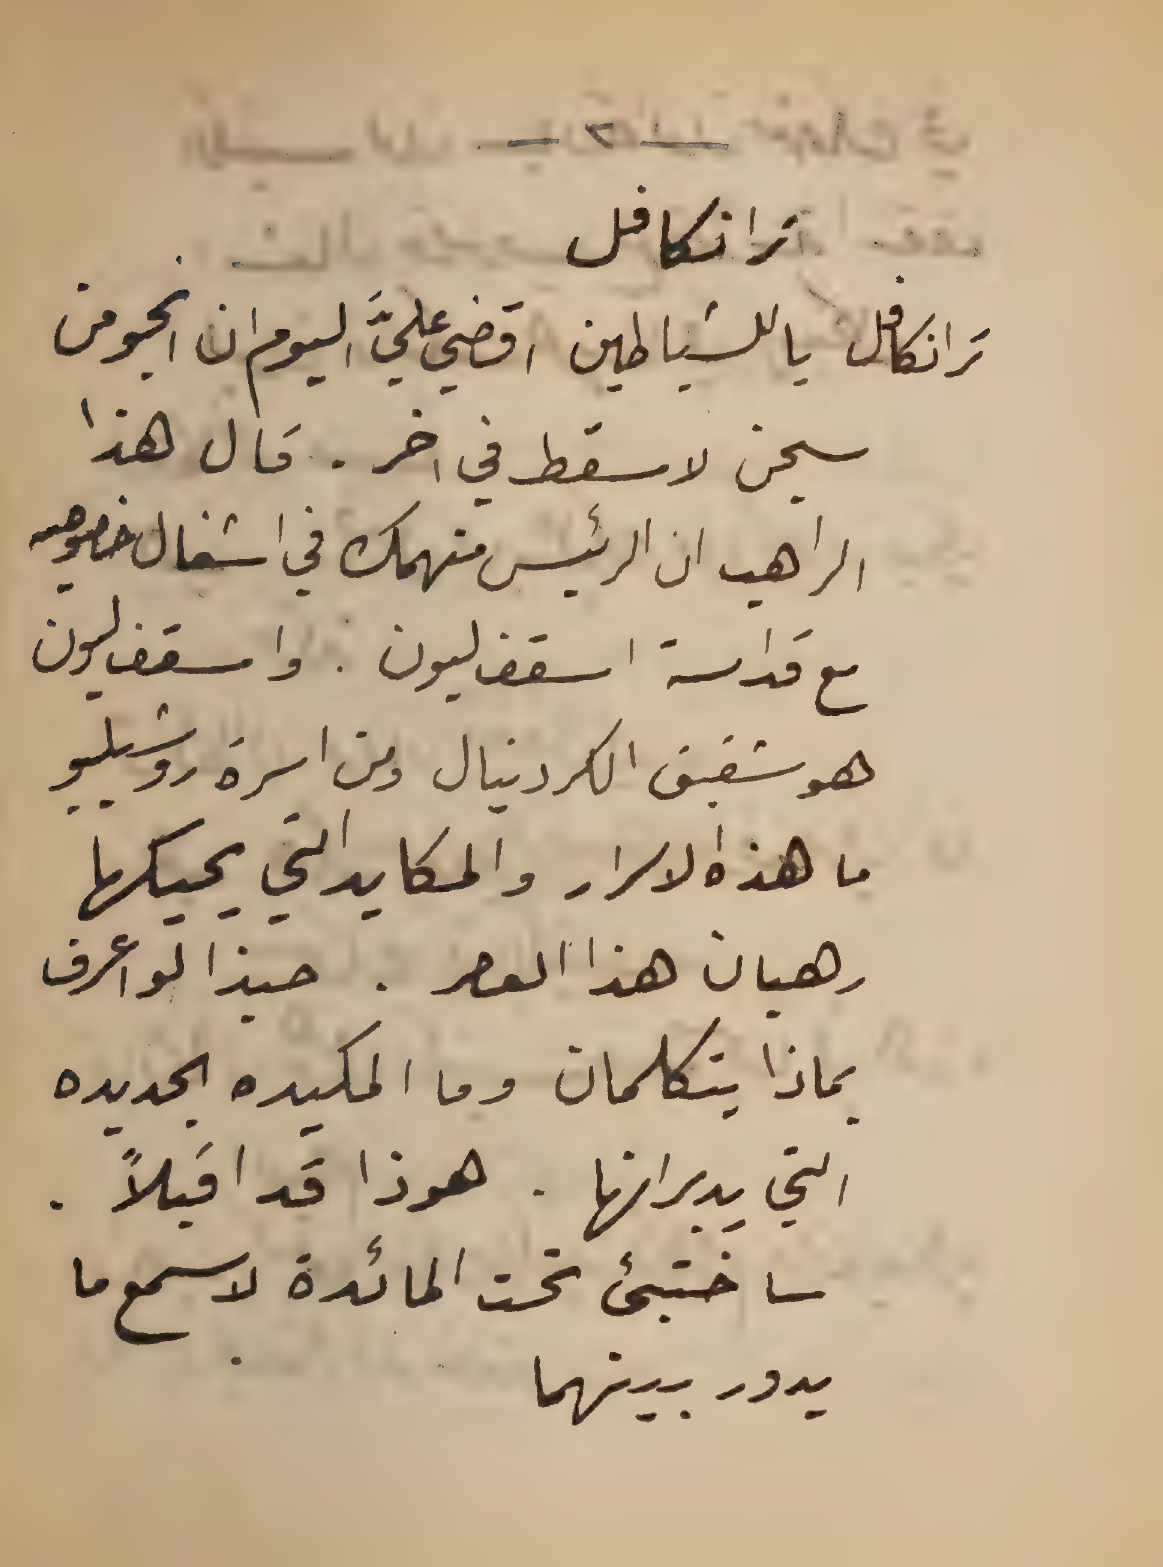 — ٢ —
ترانكافل
ترانكافل ياللشياطين اقضي عليَّ اليوم ان انجو من
سجن لاسقط في اخر . قال هذا
الراهب ان الرئيس منهمك في اشغال خصوصيه
مع قداسة اسقف ليون . واسقف ليون
هو شقيق الكردينال ومن اسرة روشيليو
ما هذه الاسرار والمكايد التي يحيكها
رهبان هذا العصر . حبذا لو اعرف
بماذا يتكلمان وما المكيده الجديده
التي يدبرانها . هوذا قد اقبلاً .
ساختبئ تحت المائدة لاسمع ما
يدور بينهما